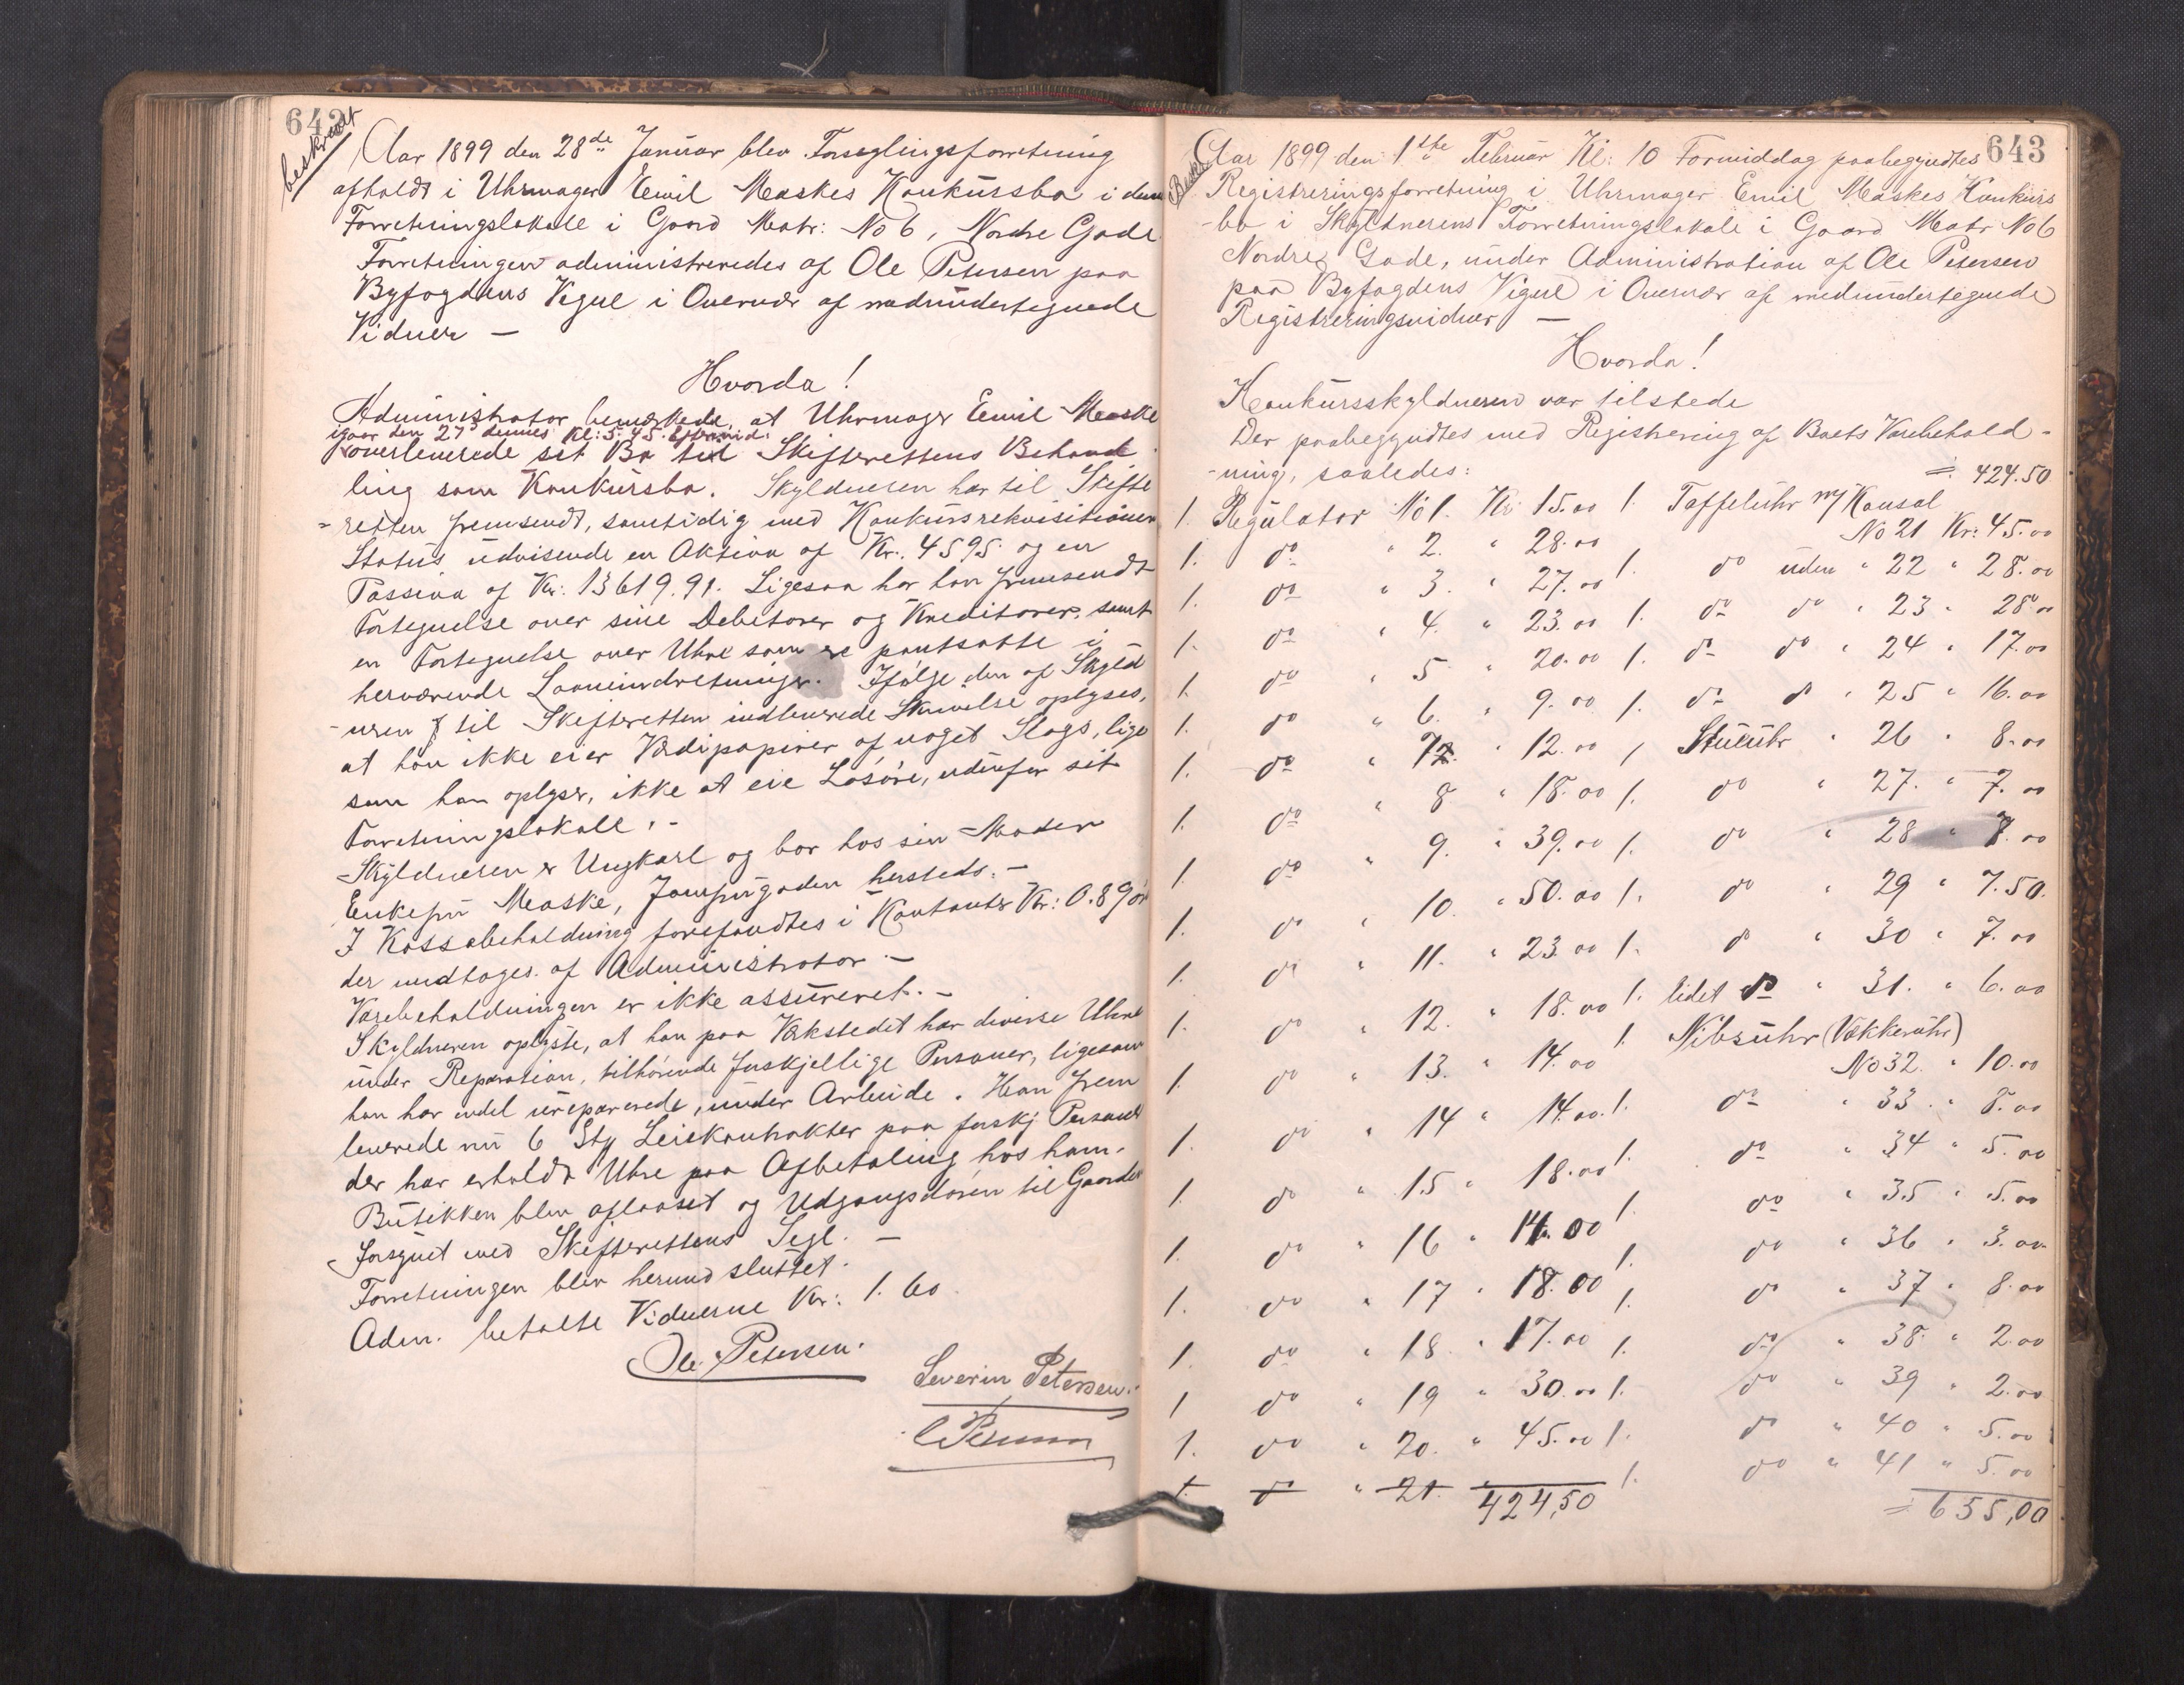 642
beskrevet
Aar 1899 den 28de Januar blev Forseglingsforretning
afholdt i Uhrmager Emil Maskes Konkursbo i dennes
Forretningslokale i Gaard Matr: No 6, Nordre Gade.
Forretningen administreredes af Ole Petersen paa
Byfogdens Vegne i Overvær af medundertegnede
Vidner —
Hvorda!
Administrator bemærkede, at Uhrmager Emil Maske
igaar den 27' dennes Kl: 5.45. Eftermid.
overleverede sit Bo til Skifterettens Behand
ling som Konkursbo. Skyldneren har til Skifte
-retten fremsendt, samtidig med Konkursrekvisitionen
Status udvisende en Aktiva af Kr. 4595 og en
Passiva af Kr: 13619.91. Ligesaa har han fremsendt
Fortegnelse over sine Debitorer og Kreditorer, samt
en Fortegnelse over Uhre som er pantsatte i
herværende Laaneindretninger. Ifølge den af Skyld
-neren til Skifteretten indleverede Skrivelse oplyses,
at han ikke eier Værdipapirer af noget Slags, lige
som han oplyser, ikke at eie Løsøre, udenfor sit
Forretningslokale. -
Skyldneren er Ungkarl og bor hos sin Moder
Enkefru Maske, Jomfrugaden hersteds. —
I Kassabeholdning forefandtes i Kontanter Kr: 0.89 ør
der modtoges af Administrator —
Varebeholdningen er ikke assureret. —
Skyldneren oplyste, at han paa Værkstedet har diverse Uhre
under Reparation, tilhørende forskjellige Personer, ligesom
han har endel ureparerede, under Arbeide. Han frem
leverede nu 6 Stk Leiekontrakter paa forskj. Personer
der har erholdt Uhre paa Afbetaling hos ham.
Butikken blev aflaaset og Udgangsdøren til Gaarden
forsynet med Skifterettens Segl. —
Forretningen blev hermed sluttet.
Adm. betalte Vidnerne Kr: 1.60
Ole Petersen.
Severin Petersen.
643
Aar 1899 den 1ste Februar Kl: 10 Formiddag paabegyndtes
Registreringsforretning i Uhrmager Emil Maskes Konkurs
-bo i Skyldnerens Forretningslokale i Gaard Matr No 6
Nordre Gade, under Administration af Ole Petersen
paa Byfogdens Vegne i Overvær af medundertegnede
Registreringsvidner —
Hvorda!
Konkursskyldneren var tilstede
Der paabegyndtes med Registrering af Boets Varebehold-
-ning, saaledes:
= 424.50
1. Regulator No 1. Kr 15.00 1. Taffeluhr m/ Konsol
No 21 Kr: 45.00
1. do " 2. " 28.00
1. do uden " 22 " 28.00
1. do " 3. " 27.00
1. do do " 23 " 28.00
1. do " 4. " 23.00
1. do do " 24 " 17.00
1. do " 5. " 20.00
1. do do " 25 " 16.00
1. do " 6. " 9.00
1 Stueuhr " 26 " 8.00
1. do " 7. " 12.00
1. do " 27. " 7.00
1. do " 8 " 18.00
1. do " 28 " 7.00
1. do " 9. " 39.00
1. do " 29 " 7.50.
1. do " 10. " 50.00
1. do " 30 " 7.00
1. do " 11. " 23.00
1. lidet do " 31. " 6.00
1. do " 12. " 18.00
1. Nibsuhr (Vækkeruhr)
No 32. " 10.00
1. do " 13. " 14.00
1. do " 33. " 8.00
1. do " 14 " 14.00.
1. do " 34 " 5.00
1. do " 15 " 18.00
1. do " 35 " 5.00
1. do " 16 " 14.00
1. do " 36 " 3.00
1. do " 17 " 18.00
1. do " 37 " 8.00
1. do " 18 " 17.00
1. do " 38. " 2.00
1 do " 19 " 30.00
1. do " 39 " 2.00
1. do " 20. " 45.00
1. do " 40 " 5.00
1. do " 21.
1. do " 41 " 5.00
424,50
= 655,00